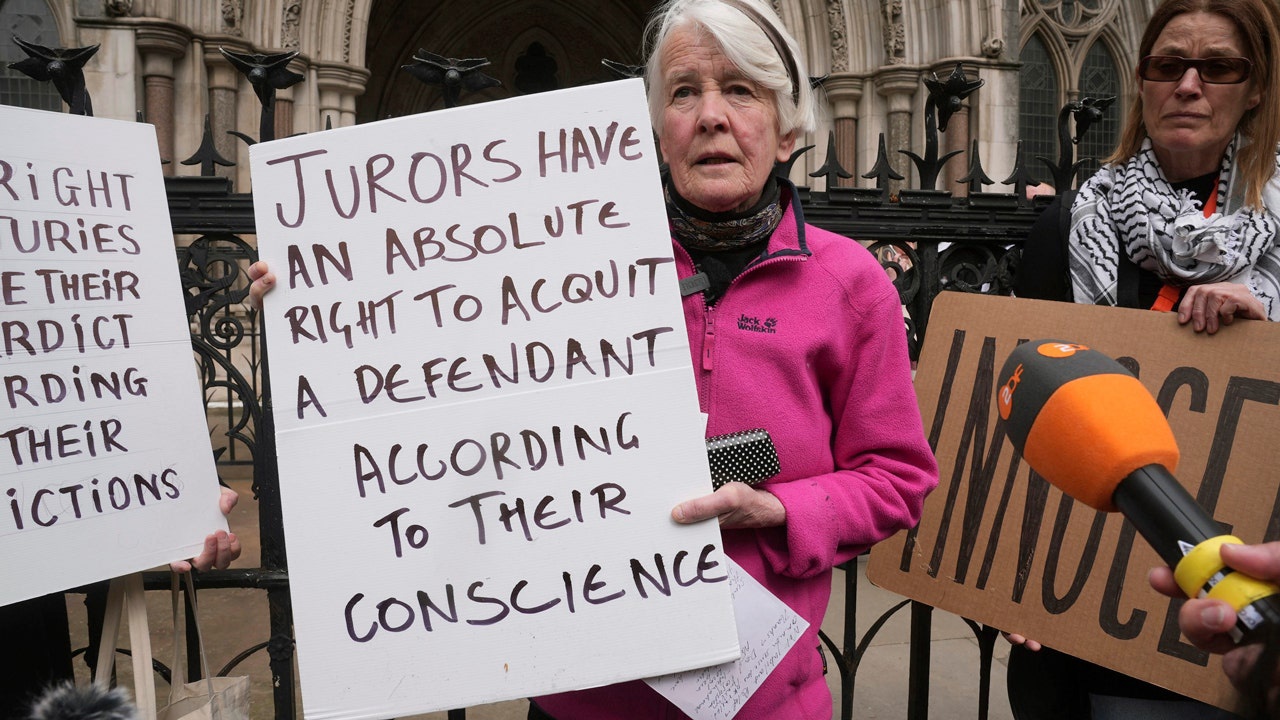 RIGHT
URIES
E THEIR
RDICT
RDING
THEIR
ICTIONS
JURORS HAVE
AN ABSOLUTE
RIGHT TO ACQUIT
A DEFENDANT
ACCORDING
TO THEIR
CONSCIENCE
Jack
Wolfskin
INNOCE
ZDF